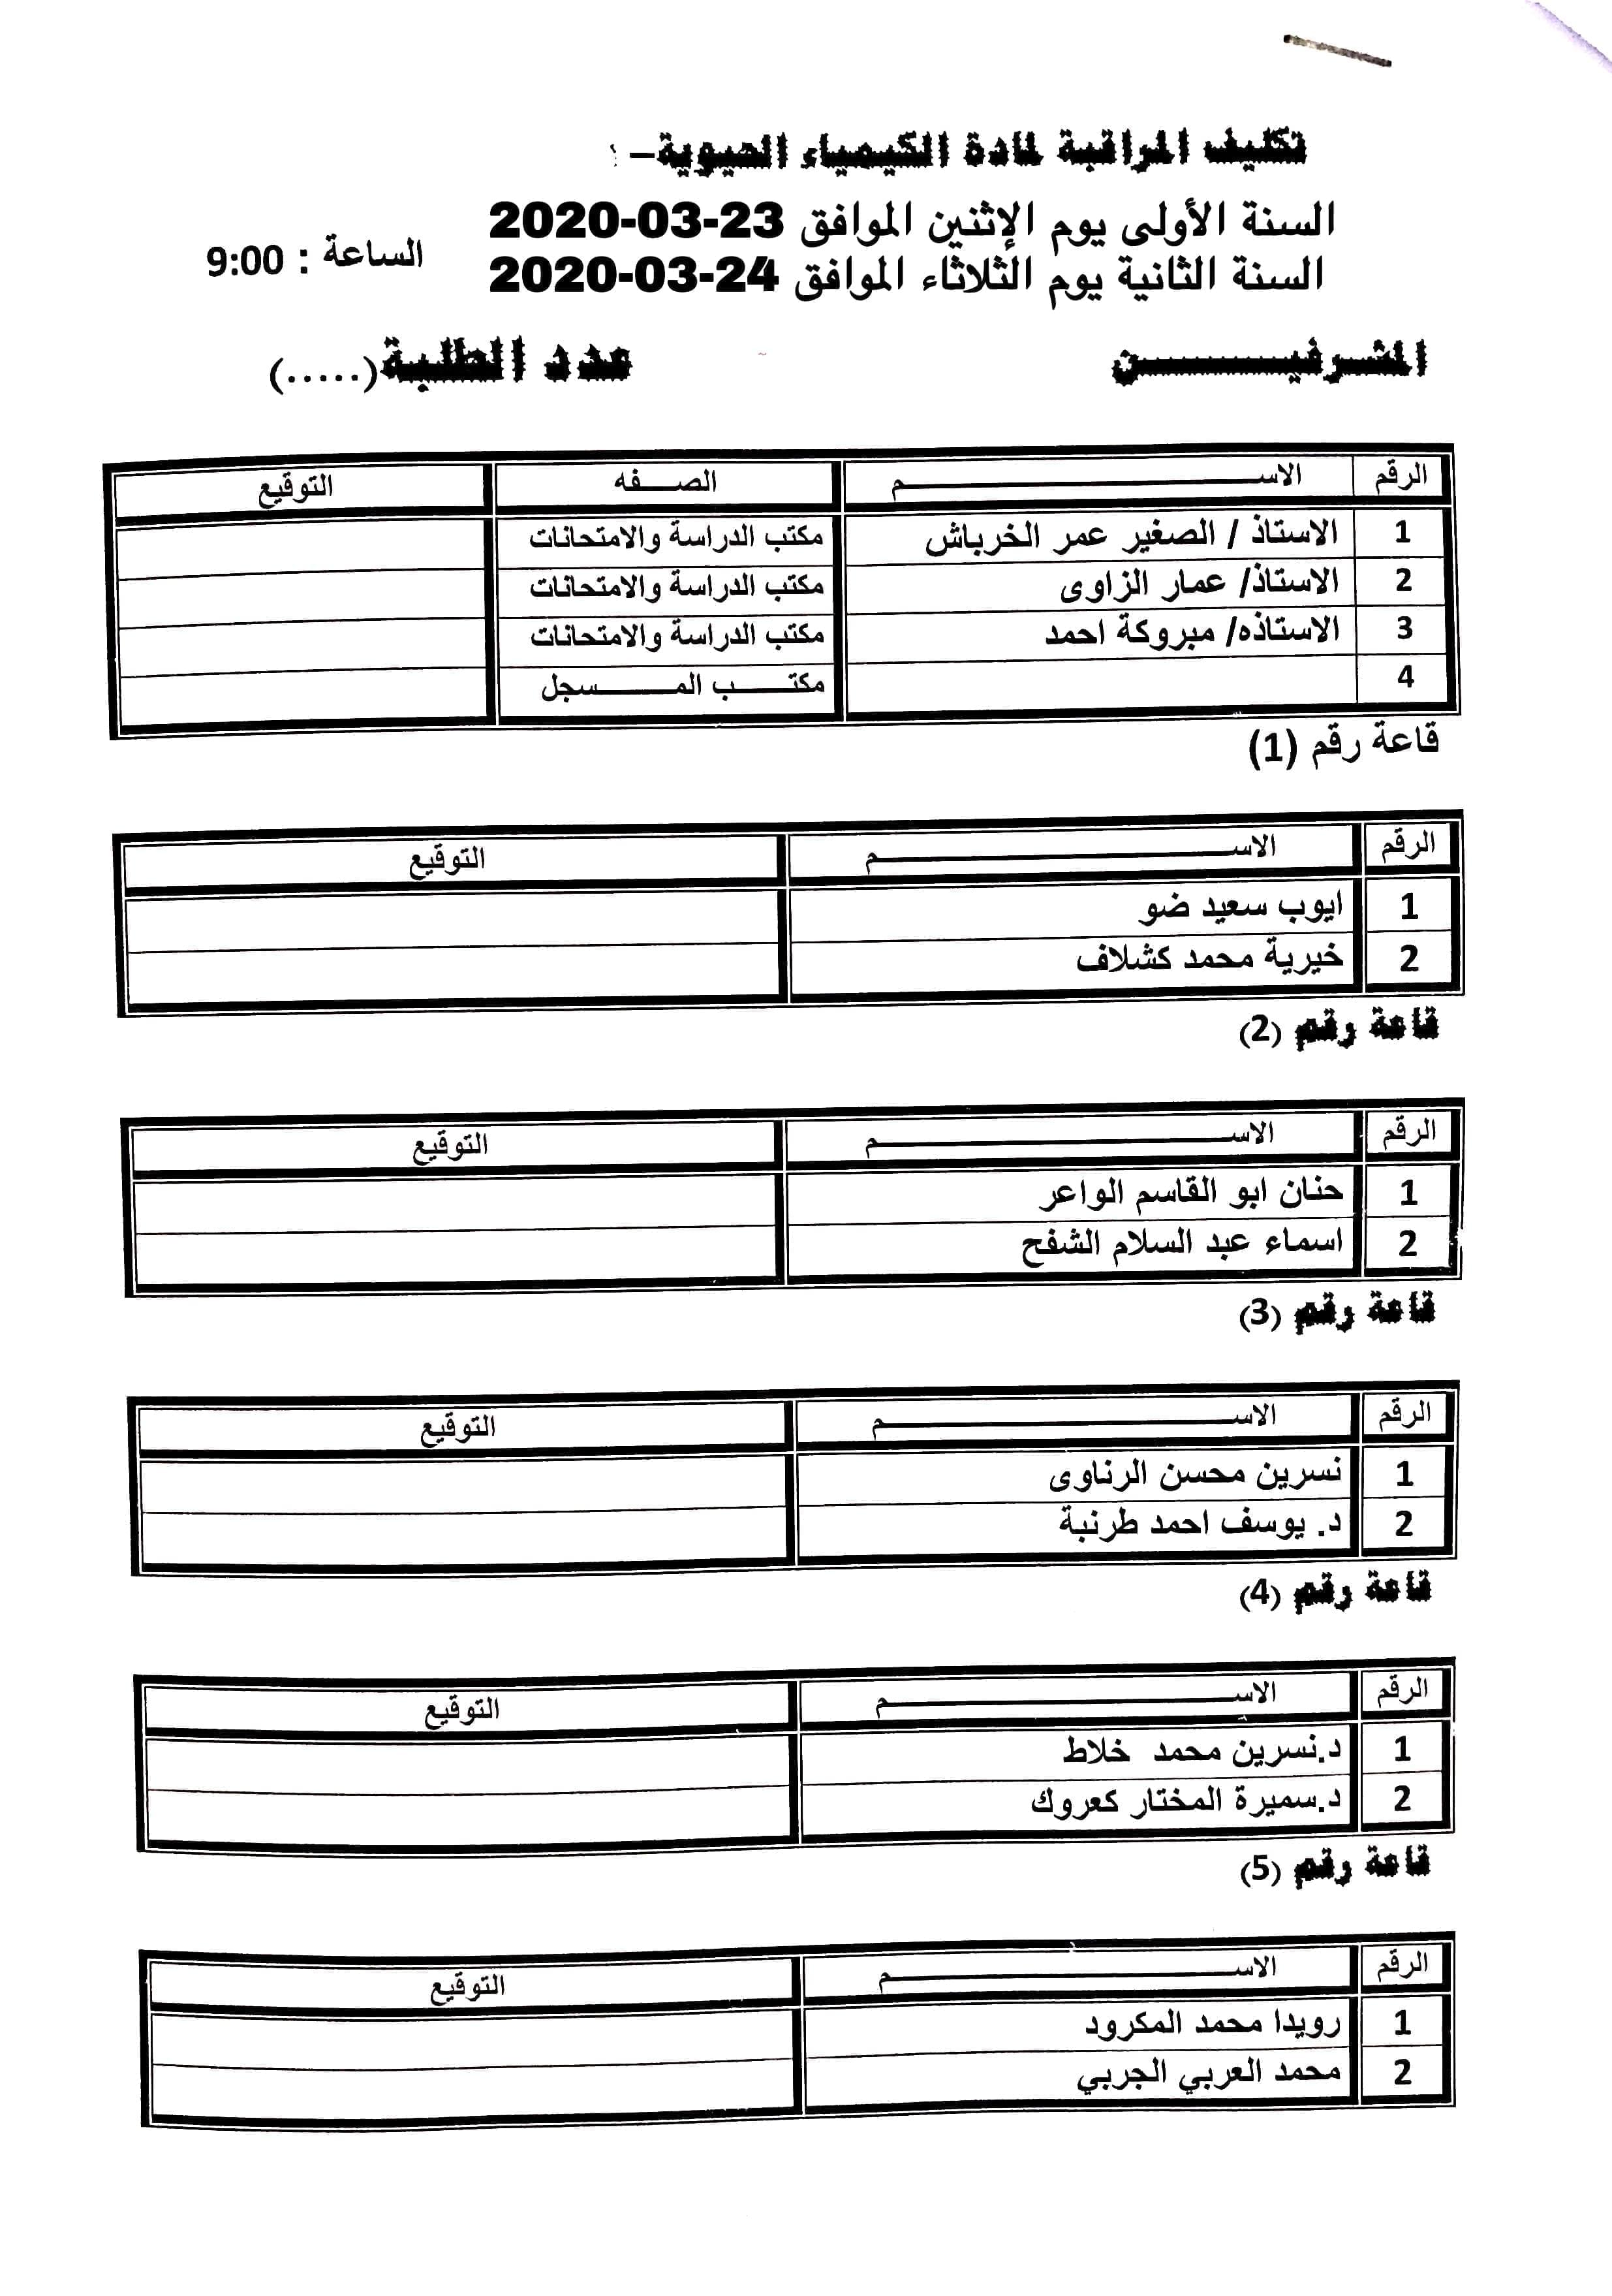 تكليف المراقبة لمادة الكيمياء الحيوية–
السنة الأولى يوم الإثنين الموافق 23-03-2020
السنة الثانية يوم الثلاثاء الموافق 24-03-2020
الساعة : 9:00
المشرفيـــــــــن عدد الطلبة(.....)
الرقم الاســـــــــــــــــــم الصــــفه التوقيع
1 الاستاذ / الصغير عمر الخرباش مكتب الدراسة والامتحانات
2 الاستاذ/ عمار الزاوى مكتب الدراسة والامتحانات
3 الاستاذه/ مبروكة احمد مكتب الدراسة والامتحانات
4 مكتـــــب المـــــــسجل
قاعة رقم (1)
الرقم الاســـــــــــــــــــم التوقيع
1 ايوب سعيد ضو
2 خيرية محمد كشلاف
قاعة رقم (2)
الرقم الاســـــــــــــــــــم التوقيع
1 حنان ابو القاسم الواعر
2 اسماء عبد السلام الشفح
قاعة رقم (3)
الرقم الاســـــــــــــــــــم التوقيع
1 نسرين محسن الرناوى
2 د. يوسف احمد طرنبة
قاعة رقم (4)
الرقم الاســـــــــــــــــــم التوقيع
1 د.نسرين محمد خلاط
2 د.سميرة المختار كعروك
قاعة رقم (5)
الرقم الاســـــــــــــــــــم التوقيع
1 رويدا محمد المكرود
2 محمد العربي الجربي